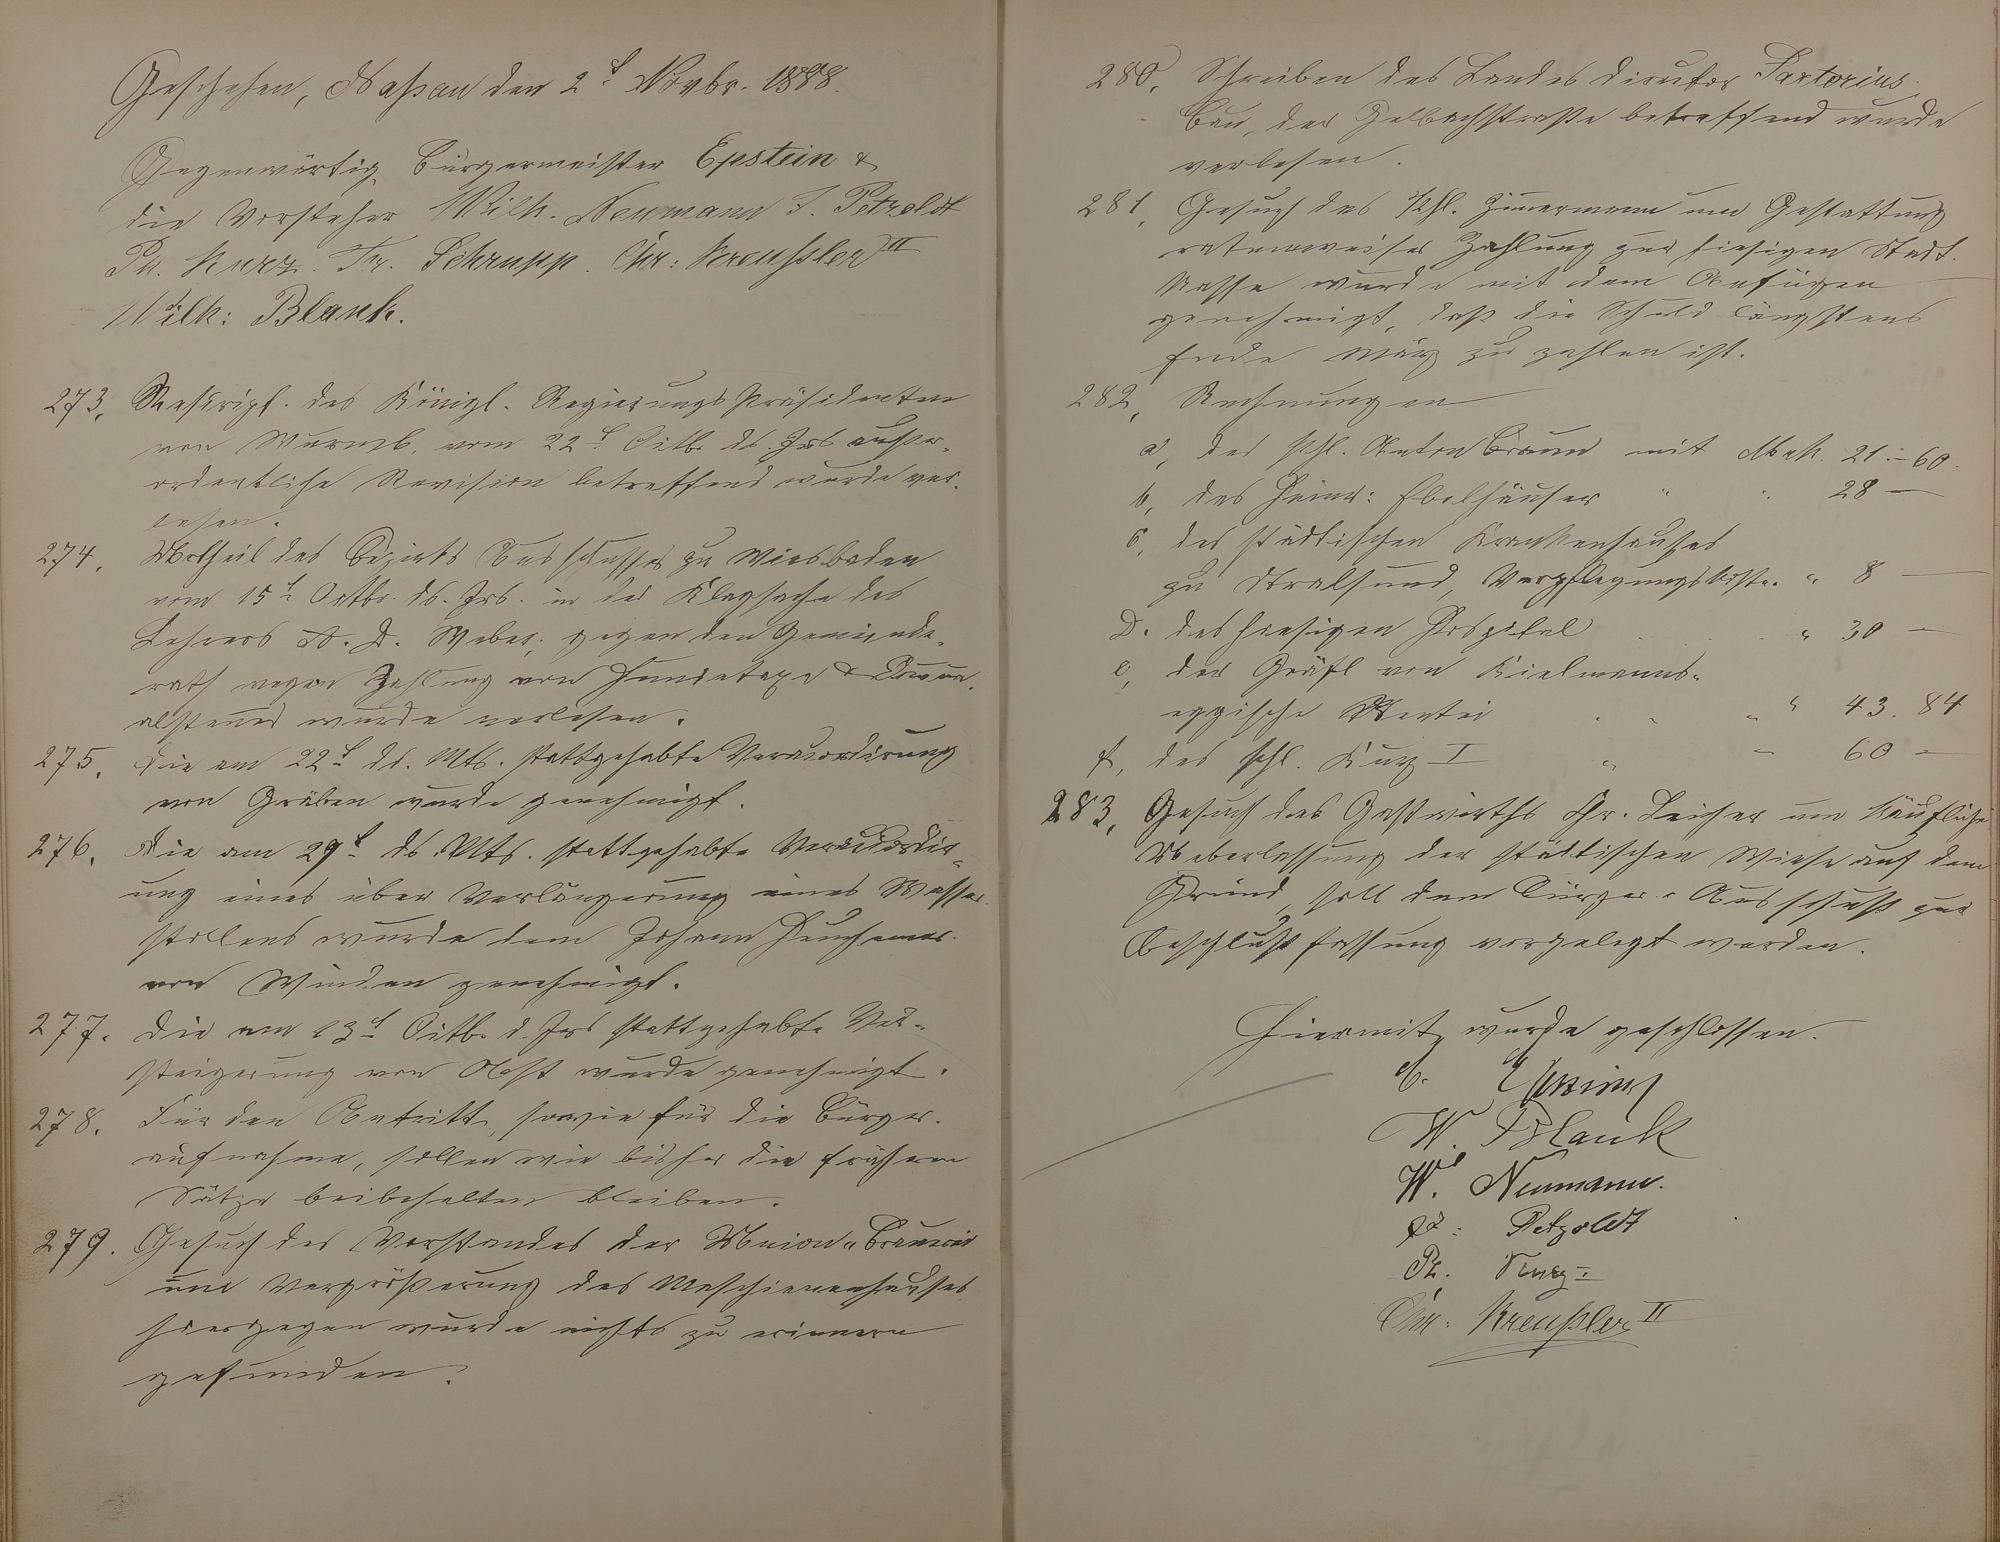 Geschehen, Naßau den 2t Novbr. 1888.
Gegenwärtig Bürgermeister Epstein &
die Vorsteher Wilh. Neumann J. Petzoldt
Ph. Kurz. Fr. Schrupp. Chr: Kreußler II
Wilh: Blank.
273, Rescript. des Königl. Regierungs Präsidenten
von Wurmb, vom 22t Octb. ds. Jrs außer-
ordentliche Revision betreffend wurde ver-
lesen.
274. Urtheil des Bezirks Ausschusses zu Wiesbaden
vom 15t Octbr. ds. Jrs. in der Klagsache des
Lehrers A. D. Weber, gegen den Gemeinde-
rath wegen Zahlung von Hundetaxe & Commun-
alsteuer wurde verlesen.
275. Die am 22t ds. Mts. stattgehabte Veraccordirung
von Gräben wurde genehmigt.
276. Die am 29t ds. Mts. stattgehabte Veraccordir-
ung eines über Verlängerung eines Wasser-
stollens wurde dem Johann
von Winden genehmigt.
277. Die am 23t Octb. d. Jrs stattgehabte Ver-
steigerung von Obst wurde genehmigt.
278. Für den Antritt, sowie für die Bürger-
aufnahme, sollen wie bisher die frühern
Sätze beibehalten bleiben.
279. Gesuch des Vorstandes der Union-Brauerei
um Vergrößerung des Maschienenhauses
hiergegen wurde nichts zu erinnern
gefunden.
280, Schreiben des Landes Direktor Sartorius.
Bau, der Gelbachstraße betreffend wurde
verlesen.
281, Gesuch des Phl. Zimmermann um Gestattung
ratenweiser Zahlung zur hiesigen Stadt-
Kasse wurde mit dem Anfügen
genehmigt, daß die Schuld längstens
Ende März zu zahlen ist.
282, Rechnungen
a, des Phl. Anton Braun mit Mark. 21:-60.
b, des Heinr: Ebelhäuser " " 28 —
c, des städtischen Krankenhauses
zu Stralsund, Verpflegungskoste. " 8 —
D. des hiesigen Hospital " 30 —
e, der Gräfl von Kielmanns-
eggische Rentei " 43. 84
f, des Phl. Kurz I " " 60 —
283, Gesuch des Gastwirths Chr. Leiser um käufliche
Ueberlassung der städtischen Wiese auf dem
Grund, soll dem Bürger-Ausschuß zur
Beschlußfassung vorgelegt werden.
Hiermit wurde geschlossen.
Epstein
W. Blank
W. Neumann.
Petzoldt
Ph. Kurz I
Chr: Kreußler II